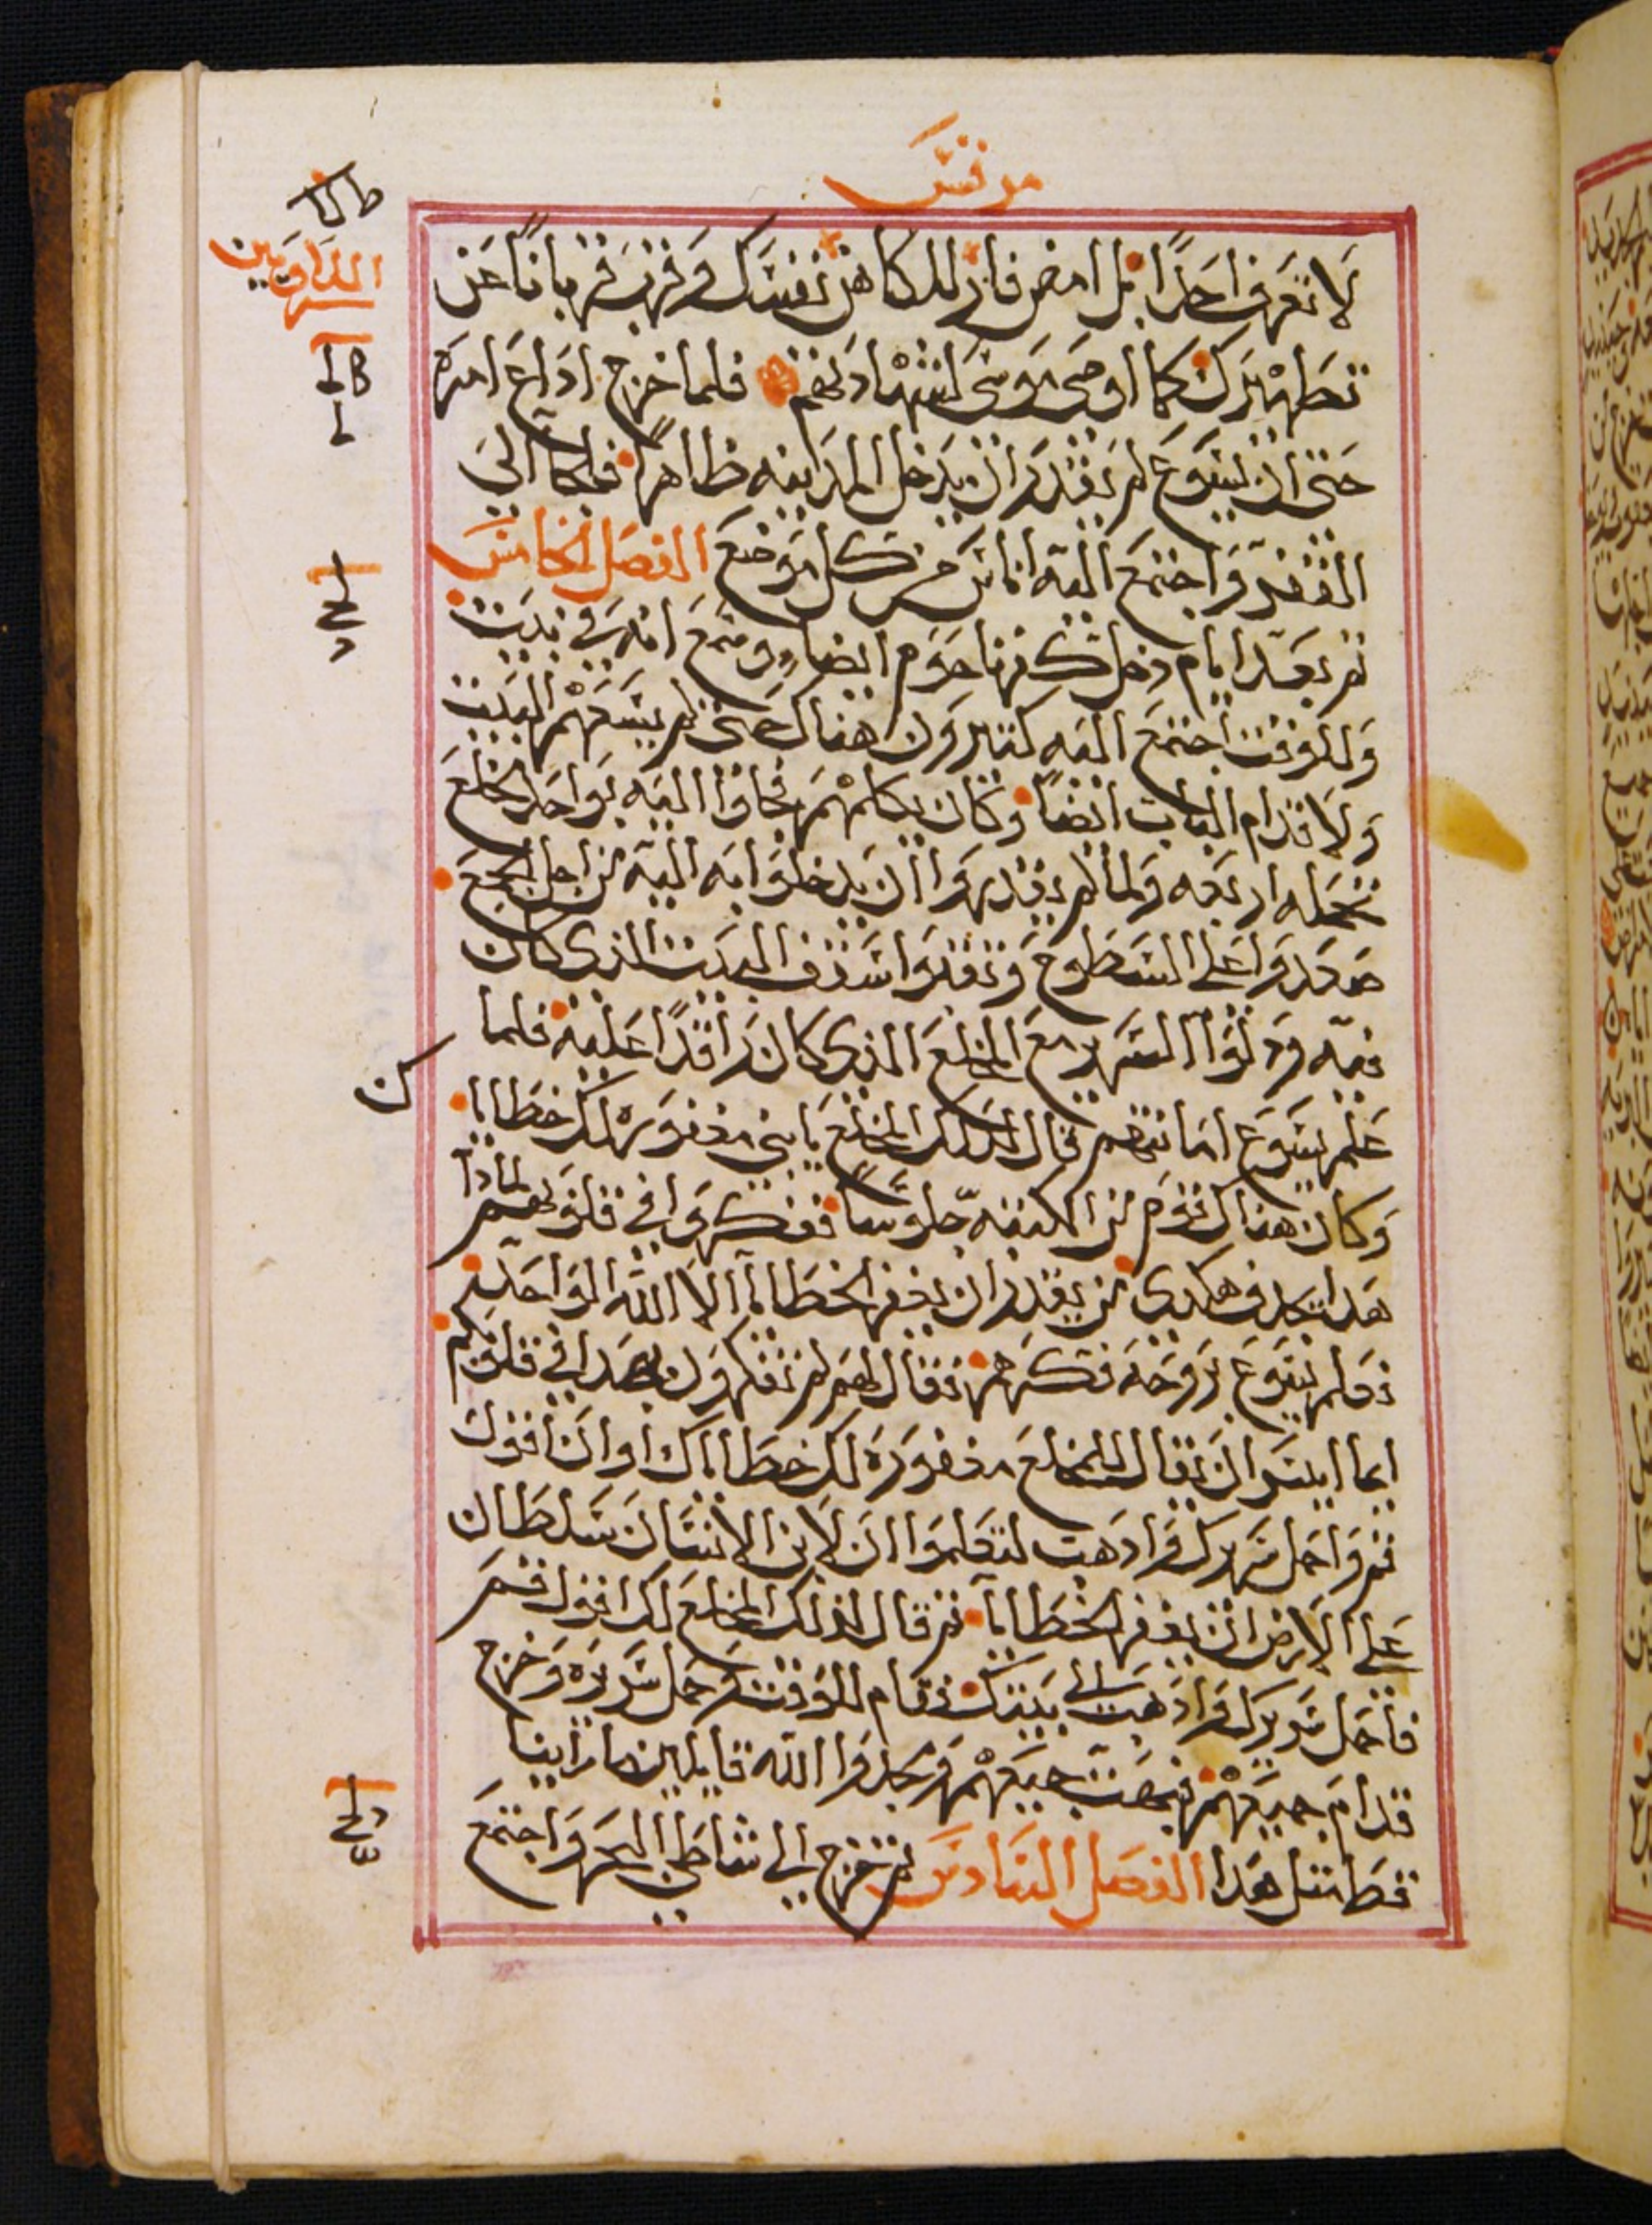 مرقس
لا تعرف احدًا بل امض فار للكاهن نفسك وقرب قربانًا عن
تطهيرك كما اوصى موسى لشهادتهم فلما خرج اداع امره
حتى ان يسوع لم يقدر ان يدخل المدينه ظاهرًا فمكا الى
القفر واجتمع اليه اناس من كل موضع الفصل الخامس
ثم بعد ايام دخل كفرناحوم ايضا وسمع انه في بيت
وللوقت اجتمع اليه كثيرون هناك حتى لم يسعهم البيت
ولا قدام الباب ايضًا وكان يكلمهم فجاوا اليه بواحد مخلع
تحمله اربعه ولما لم يقدروا ان يدخلوا به اليه من اجل الجمع
صعدوا على السطوح ونقلوا سقف البيت الذي كان
فيه ودلوا السرير مع المخلع الذي كان راقدًا عليه فلما
علم يسوع امانتهم قال لذلك المخلع يا بني مغفوره لك خطايا
وكان هناك قوم من الكتبه جلوسًا ففكروا في قلوبهم لمادا
هدا يجدف هكدى من يقدر ان يغفر الخطايا الا الله الواحد
فعلم يسوع بروحه فكرهم فقال لهم لم تفكرون بهدا في قلوبكم
ايما ايسر ان يقال للمخلع مغفوره لك خطاياك او ان اقول
قم واحمل سريرك وادهب لتعلموا ان لابن الانسان سلطان
على الارض ان يغفر الخطايا ثم قال لذلك المخلع لك اقول قم
فاحمل سريرك وادهب الى بيتك فقام للوقت وحمل سريره وخرج
قدام جميعهم فبهت جميعهم ومجدوا الله قايلين ما راينا
قط مثل هدا الفصل السادس ثم خرج الى شاطي البحر واجتمع